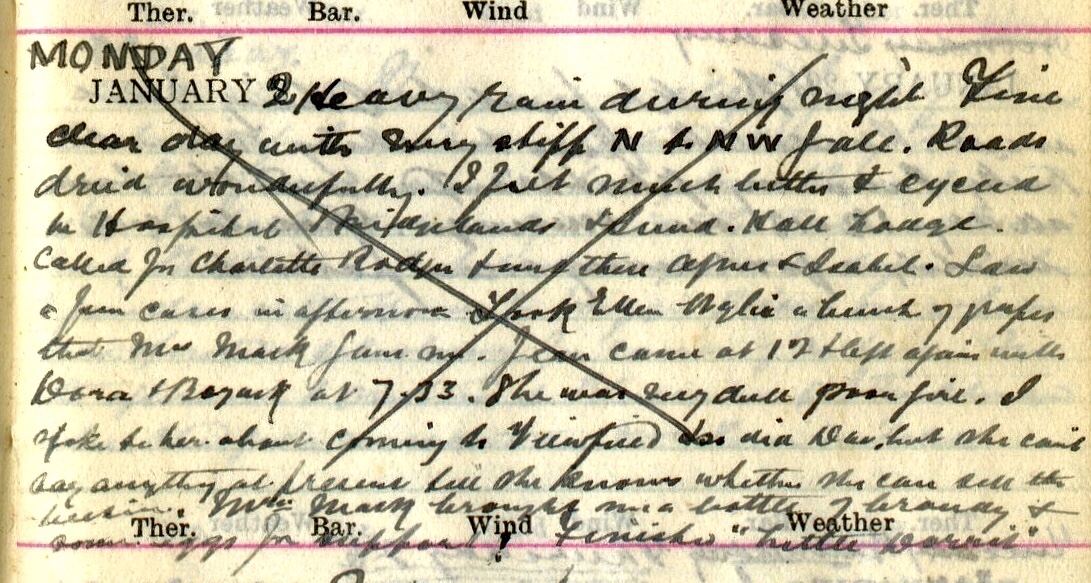 Ther. Bar. Wind Weather
MONDAY
JANUARY 2 Heavy rain during night Fine
clear day with very stiff N to NW gale. Roads
dried wonderfully. I felt much better & cycled
to Hospital & . Hall Lodge.
Called for Charlotte Rodger & there Agnes & Isabel. Saw
a few cases in afternoon Took Ellen Wylie a bunch of grapes
that Mrs Mack gave me. Jean came at 12 & left again with
Dora & at 7.33. She was very dull poor girl. I
spoke to her about coming to Viewfield so did Dav, but she can't
say anything at present till she knows whether she can sell the
. Mrs Mack brought me a bottle of brandy &
Ther. Bar. Wind Weather
some eggs for supper! Finished "Little Dorrit"